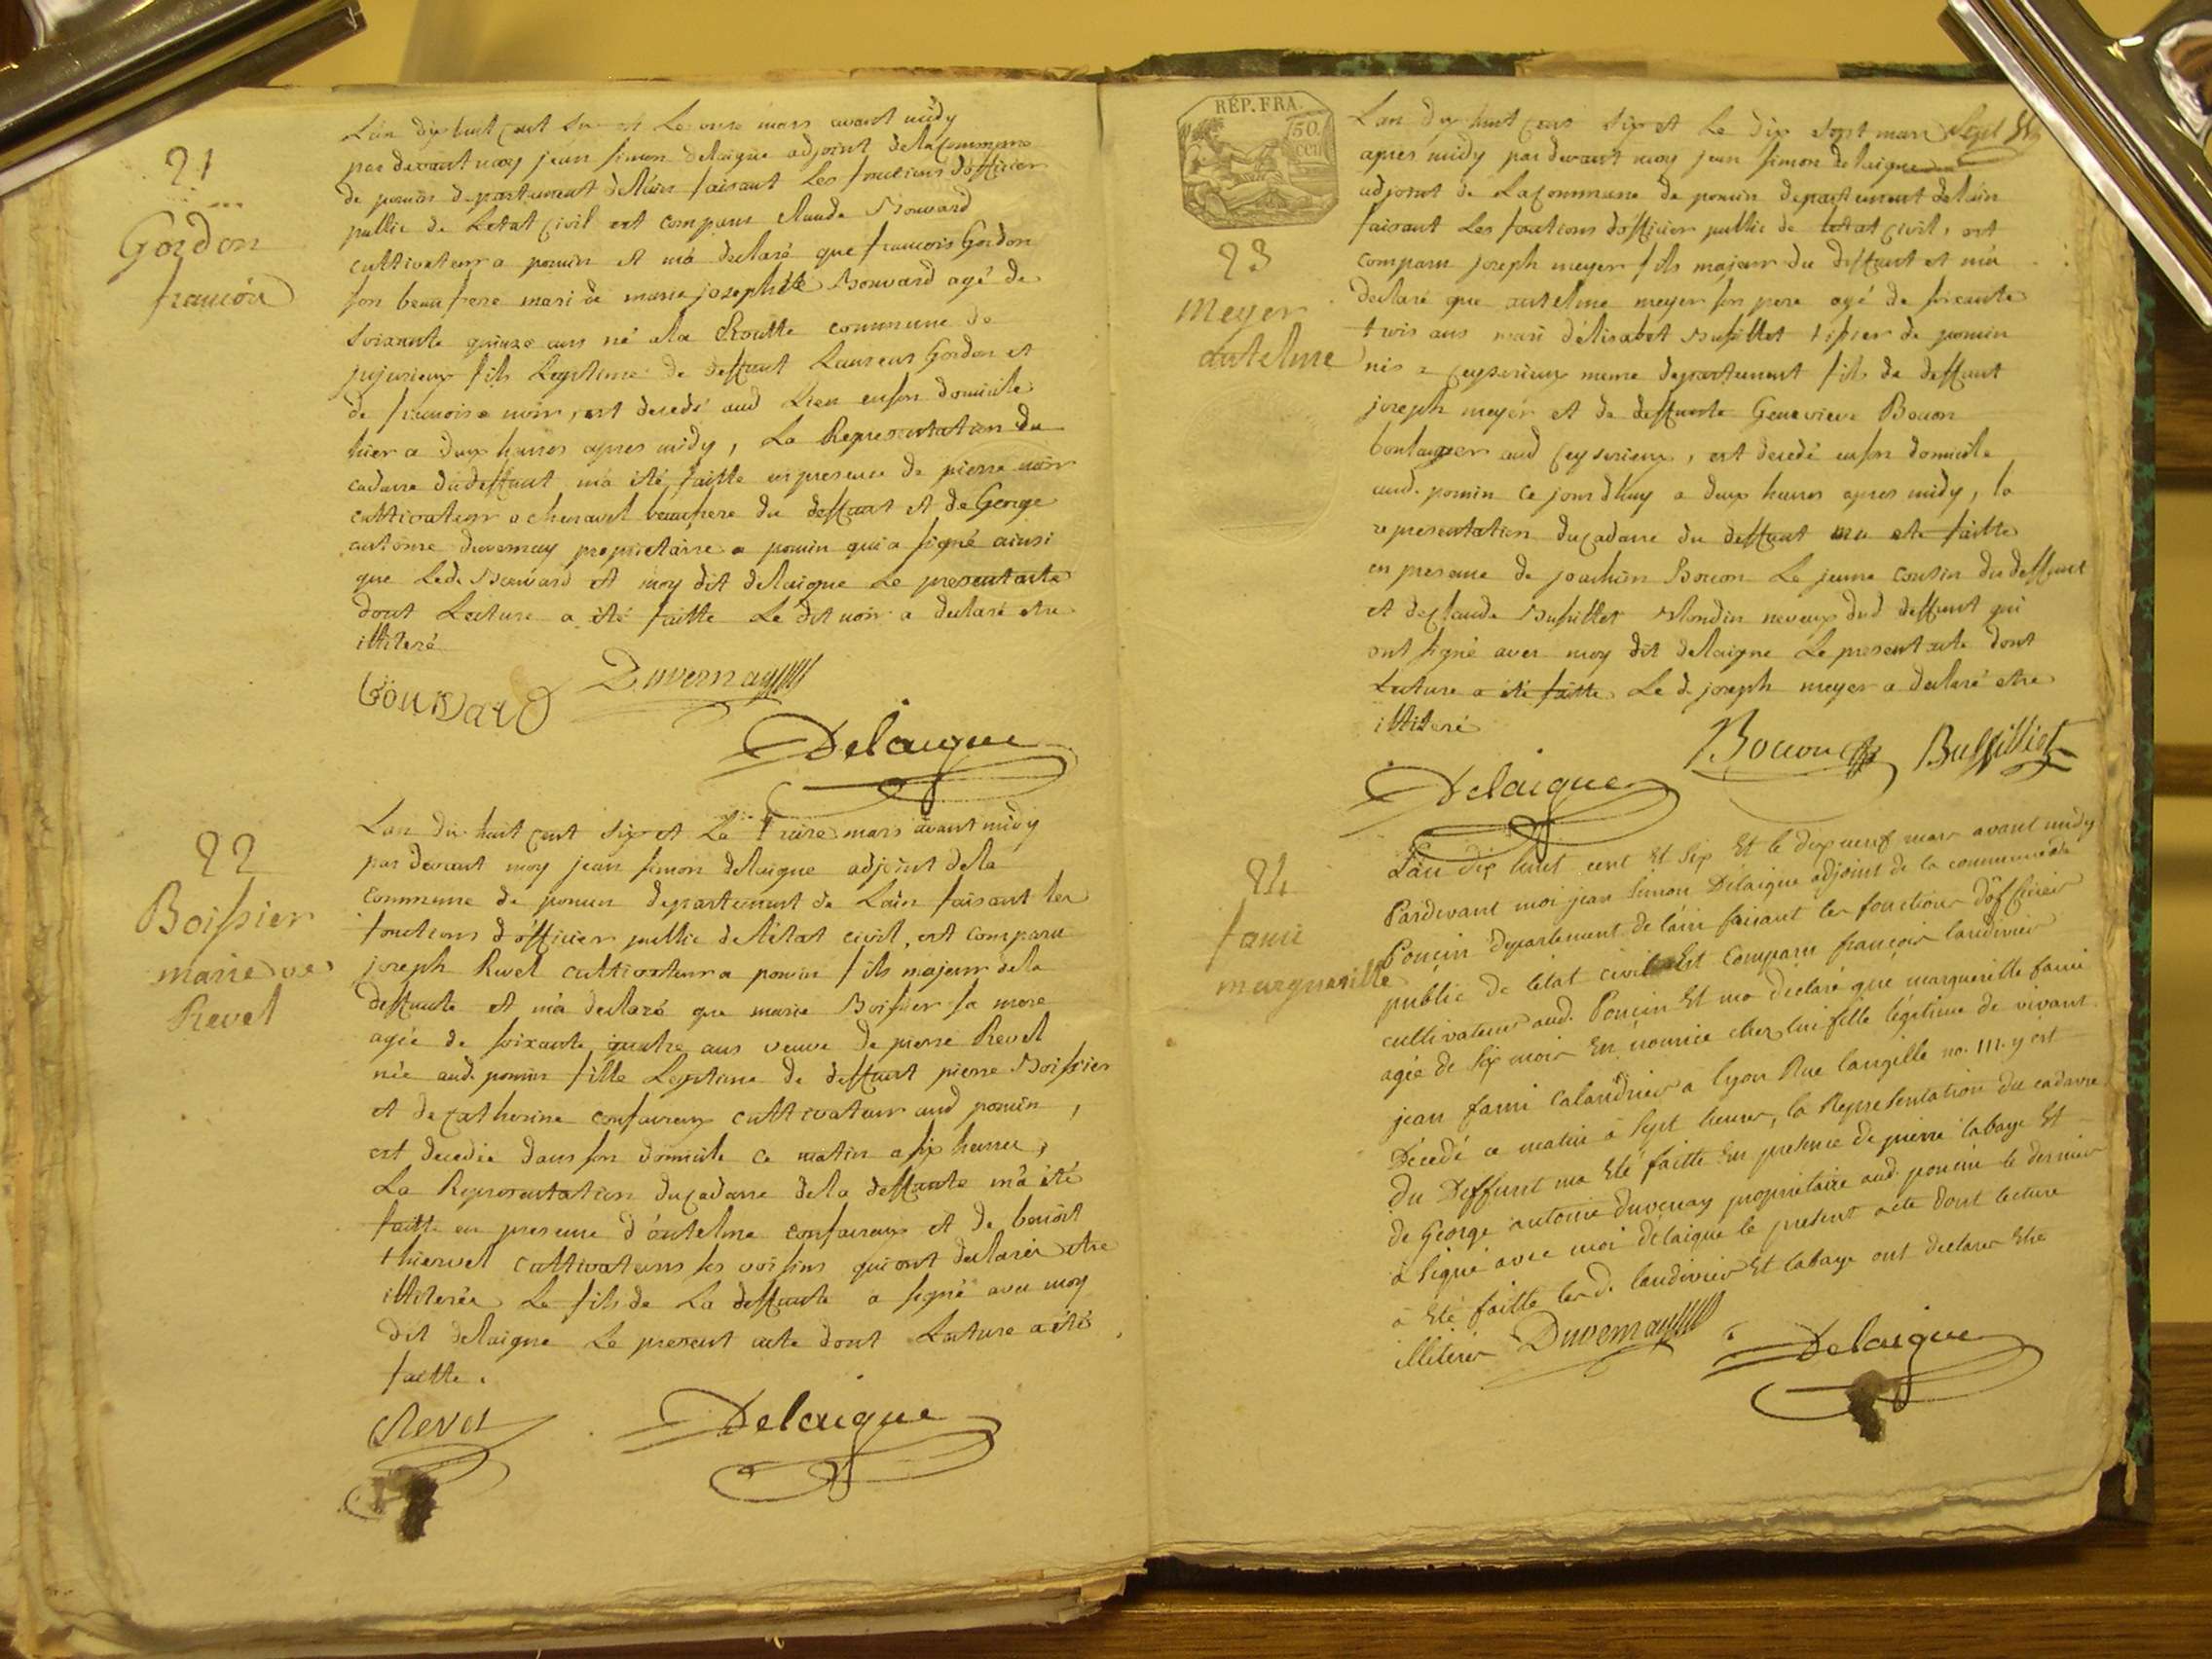 21
Gordon
francois
L'an dix huit cent six et le onze mars avant midy
par devant moy jean simon delaigue adjoint de la commune
de poncin departement de l'ain faisant les fonctions d'officier
public de l'etat civil est comparu claude Bouvard
cultivateur a poncin et m'a declaré que francois Gordon
son beaufrere mari de marie josephte Bouvard agé de
soixante quinze ans né a la Route commune de
jujurieux fils legitime de deffunt Laurent Gordon et
de francoise noir, est decedé aud lieu en son domicile
hier a deux heures apres midy, La Representation du
cadavre du deffunt m'a été faitte en presence de pierre noir
cultivateur a chenavel beaufrere du deffunt et de George
antoine duvernay proprietaire a poncin qui a signé ainsi
que led. Bouvard et moy dit delaigue le present acte
dont Lecture a été faitte Le dit noir a declaré etre
illiteré
Bouvard Duvernay
Delaigue
22
Boissier
marie ve
Revel
L'an dix huit cent six et le treize mars avant midy
par devant moy jean simon delaigue adjoint de la
commune de poncin departement de L'ain faisant les
fonctions d'officier public de l'état civil, est comparu
joseph Revel cultivateur a poncin fils majeur de la
deffunte et m'a declaré que marie Boissier sa mere
agée de soixante quatre ans veuve de pierre Revel
née aud. poncin fille Legitime de deffunt pierre Boissier
et de catherine confavreux cultivateur aud poncin,
est decedée dans son domicile ce matin a six heures,
La Representation du cadavre de la deffunte m'a été
faitte en presence d'antelme confavreux et de benoit
thiervel cultivateurs ses voisins qui ont declarés etre
illiterés Le fils de La deffunte a signé avec moy
dit delaigue Le present acte dont Lecture a été
faitte.
Revel Delaigue
RÉP. FRA.
50.
cen
23
meyer
antelme
L'an dix huit cent six et Le dix sept mars sept
apres midy par devant moy jean simon delaigue
adjoint de La Commune de poncin departement de lain
faisant Les fonctions d'officier public de letat civil, est
comparu joseph meyer fils majeur du deffunt et m'a
declaré que antelme meyer son pere agé de soixante
trois ans mari d'elisabet Bussillet tissier de poncin
nés a ceyserieux meme departement fils de deffunt
joseph meyer et de deffunte Genevieve Bouon
boulanger aud ceyserieux, est decedé en son domicile
aud. poncin ce jourdhuy a deux heures apres midy, la
representation du cadavre du deffunt m'a eté faitte
en presence de joachim Bouon Le jeune cousin du deffunt
et de claude Bussillet Blondin neveux dud deffunt qui
ont signé avec moy dit delaigue Le present acte dont
Lecture a été faitte Le d. joseph meyer a declaré etre
illiteré
Delaigue Bouon Bussilliet
24
fami
marguerilte
L'an dix huit cent et six Et le dix neuf mars avant midy
Pardevant moi jean simon Delaigue adjoint de la commune de
Poncin departement de l'ain faisant les fonctions d'officier
public de l'état civil Est Comparu françois landivier
cultivateur aud. Poncin Et ma déclaré que marguerille fami
agée de six mois En nourrice chez lui fille légitime de vivant
jean fami Calandrier a lyon Rue langille no. 111. y est
Décédé ce matin a sept heures, la Représentation du cadavre
Du Deffunt ma Eté faitte En presence de pierre labaye Et
de George antoine duvernay propriétaire aud. poncin le dernier
a signé avec moi délaigue le présent acte dont lecture
a Eté faitte les d. landivier Et labaye ont declarer Etre
illiterés Duvernay Delaigue